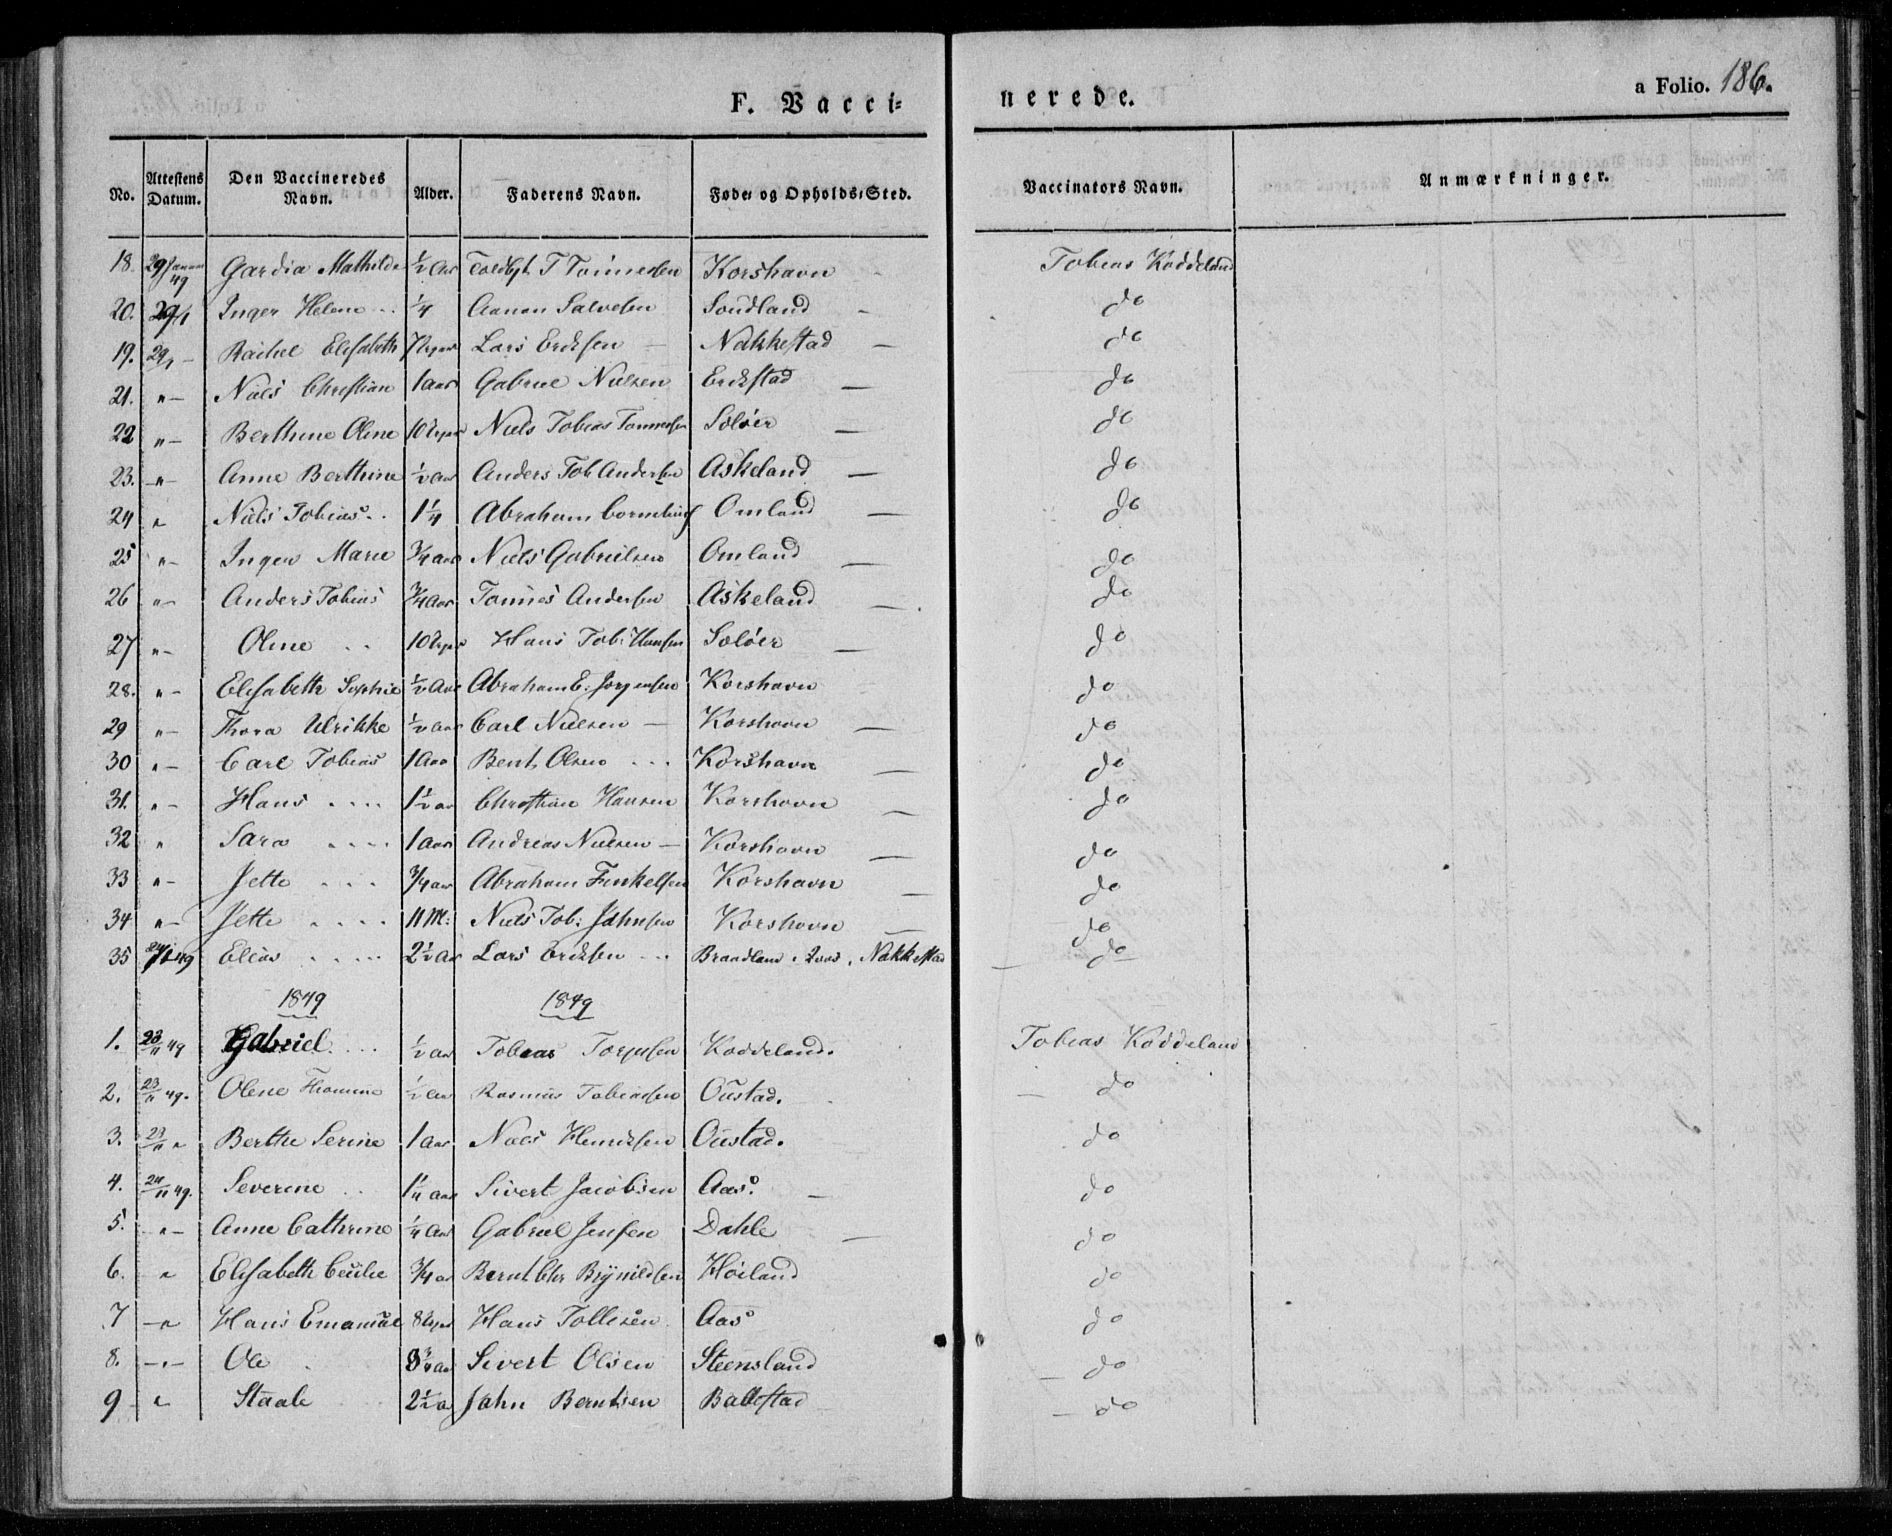 F. Vacci= nerede. a Folio. 186.
No. Attestens Datum. Den Vaccineredes Navn. Alder. Faderens Navn. Føde- og Opholds-Sted. Vaccinators Navn. Anmærkninger.
18. 29 Januar 49 Gardia Mathilde ½ Aar T Tönnesen Korshavn Tobias Koddeland
20. 29/1 Inger Helene .. ¼ Aanon Salvesen Soudland – do
19. 29/1 – Rachel Elisabeth 7 Lars Eriksen – Nakkestad – do
21. " – Niels Christian 1 aar Gabriel Nielsen Erikstad – do
22 " – Berthine Oline 10 Niels Tobias Tönnesen Soløer – do
23. – " – Anne Berthine ½ aar Anders Tob Andersen Askeland – do
24 " Niels Tobias .. 1¼ Abraham Corneliusf Omland – do
25 " – Inger Marie ¾ aar Niels Gabrielsen Omland – do
26 " – Anders Tobias ¾ Aar Tönnes Andersen Askeland – do
27 " – Oline .. 10 Hans Tob: Hansen Soløer – do
28. " – Elisabeth Sophie ½ Aar Abraham E: Jörgensen Korshavn do
29 " – Thora Ulrikke ½ aar Carl Nielsen – Korshavn – do
30 " – Carl Tobias 1 Aar Bent Olsen ... Korshavn – do
31. " – Hans .... 1½ aar Christian Hansen Korshavn – do
32 " Sara .... 1 Aar Andreas Nielsen – Korshavn – do
33 " – Jette ... ¾ aar Abraham Finkelsen Korshavn – do
34 " – Jette .... 11 M: Niels Tob: Jahnsen Korshavn – do
35 24/1 49 Elias ..... 2½ Aar Lars Eriksen ... Brandland i Qvas, Nakkestad – do
1849 1849
1. 23/11 49 Gabriel .... ½ aar Tobias Torjusen Koddeland. Tobias Koddeland
2. 23/11 49. Oline Thomine ½ Aar Rasmus Tobiassen Oustad. – do
3. 23/11 " Berthe Serine 1 Aar Niels Henriksen Oustad. do
4. 24/11 49. Severine .. 1¼ aar Sivert Jacobsen Aas. – do
5. – " – Anne Cathrine ¼ Aar Gabriel Jensen Dahle – do
6. " Elisabeth Cecilie ¾ ar Bernt Chr Brynildsen Höiland do
7 – " Hans Emanuel 8 Hans Tollesen. Aas do
8. – " – Ole . 3¾ Aar Sivert Olsen Steensland – do
9 – " Staale 2½ a Jahn Berntsen Ballestad – do